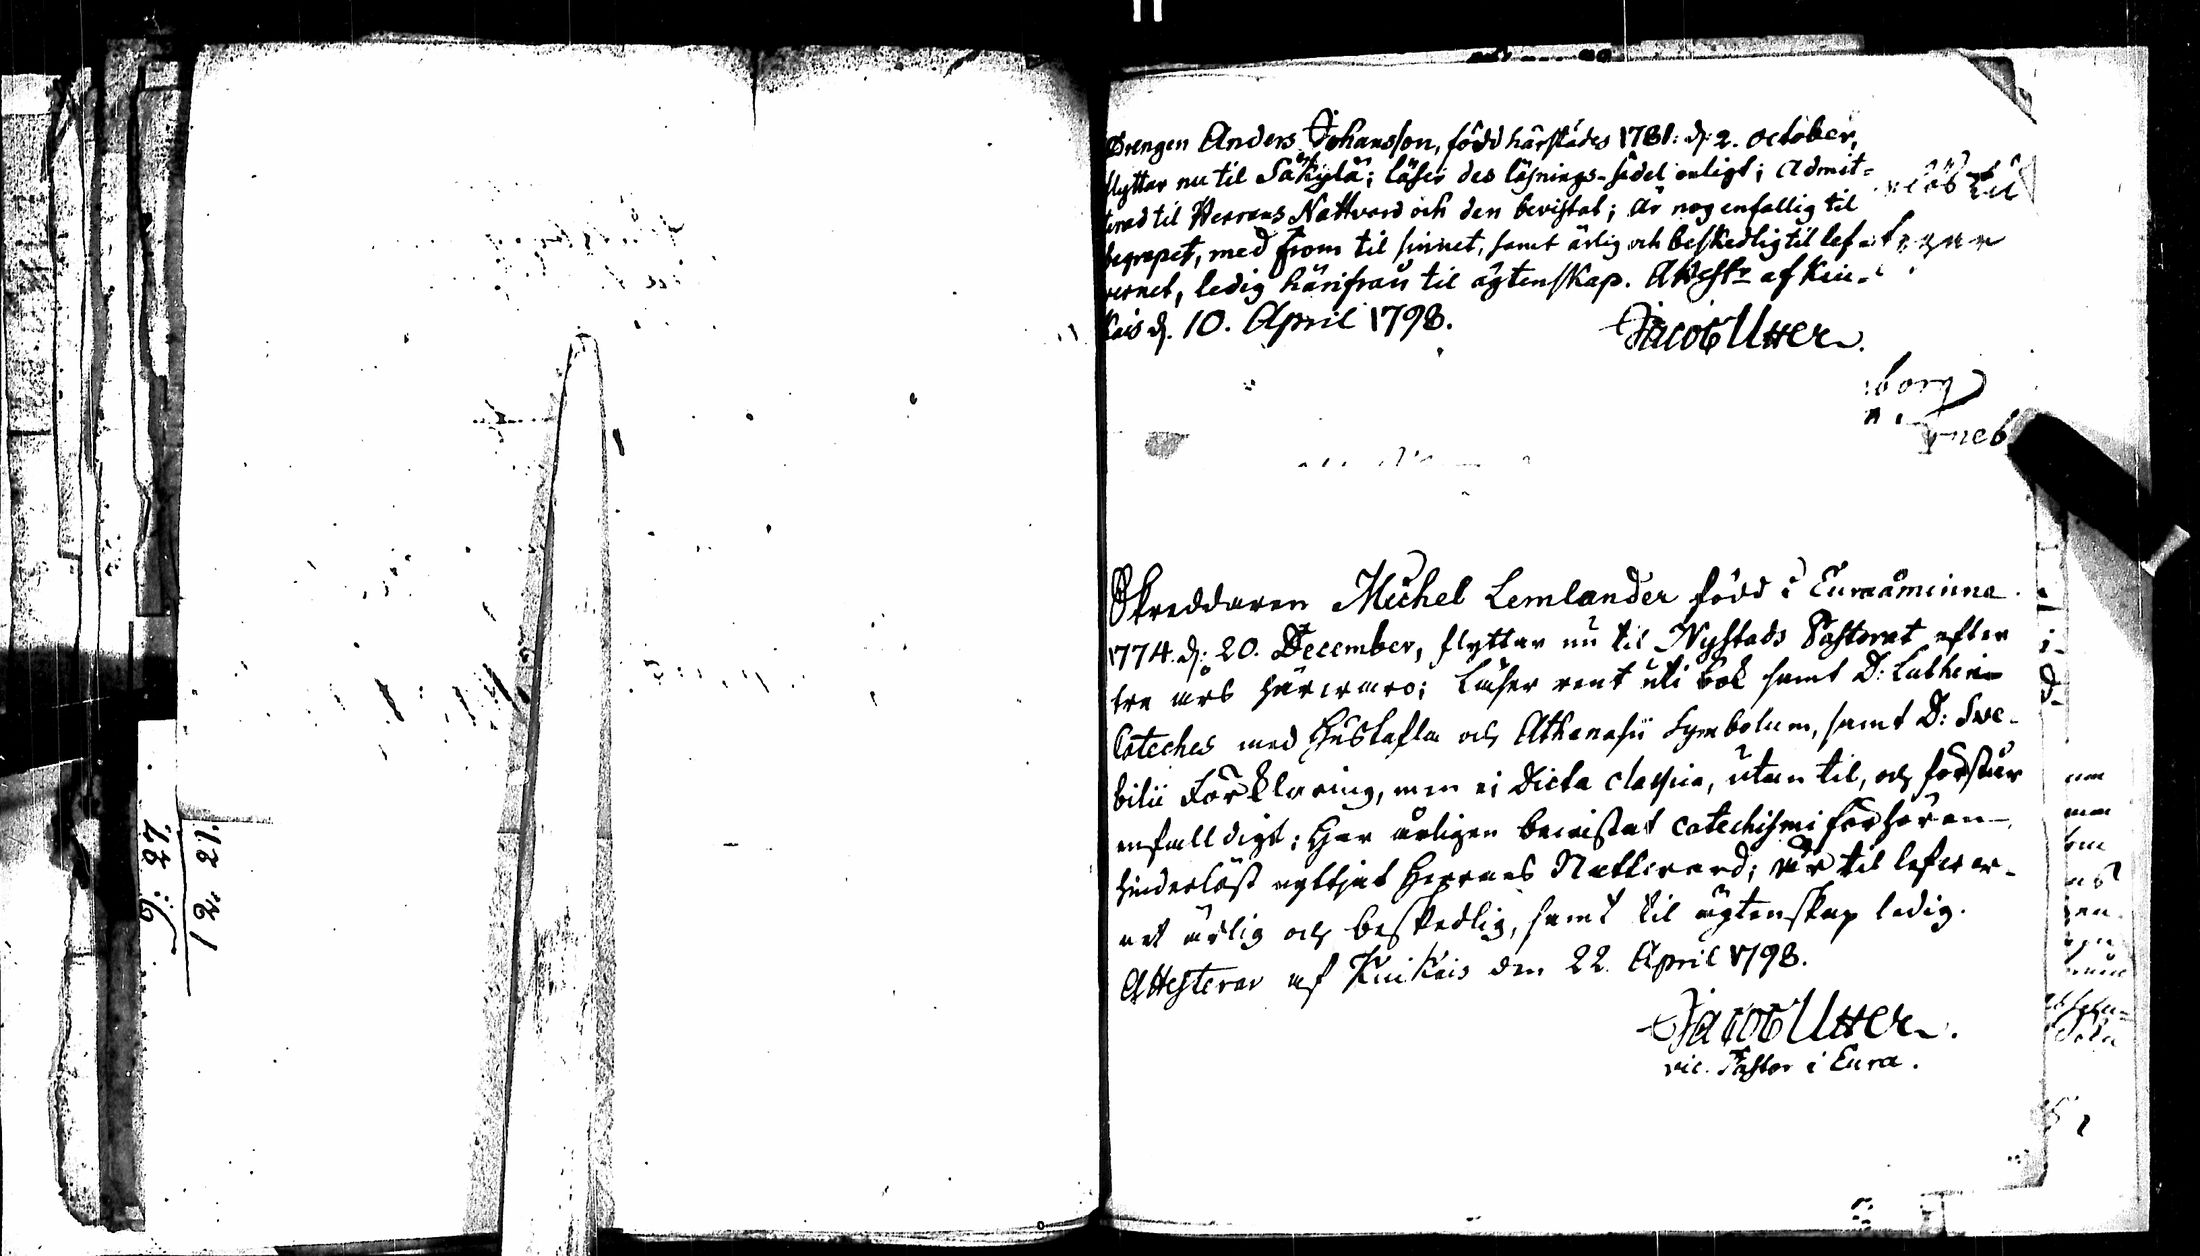 Drengen Anders Johansson, född härstädes 1781: d. 2. October,
flyttar nu til Säkylä; läser des läsnings-sedel enligt; Admit-
terad til Herrans Nattvard och den bevistat; är nog enfallig til
begrepet, med from til sinnet, samt ärlig och beskedlig til lef-
vernet, ledig härifrån til ägtenskap. Attestr af Kiu-
kais d. 10. April 1798.
Jacob Utter.
borg
Skreddaren Michel Lemlander född i Euraåminne
1774. d: 20. December, flyttar nu til Nystads Pastorat efter
tre års härwaro; läser rent uti bok samt D: Lutheri
Cateches med Hustafla och Athanasii Symbolum, samt D: Sve-
bilii Förklaring, men ei Dicta classica, utan til, och förstår
enfalldigt; Har årligen bewistat catechismi förhören
hinderlöst nyttjat Herrans Nattward; är til lefwer-
net ärlig och beskedlig, samt til ägtenskap ledig.
Attesterar af Kiukais den 22. April 1798.
Jacob Utter.
vic. Pastor i Eura.
27: 6
12 21.